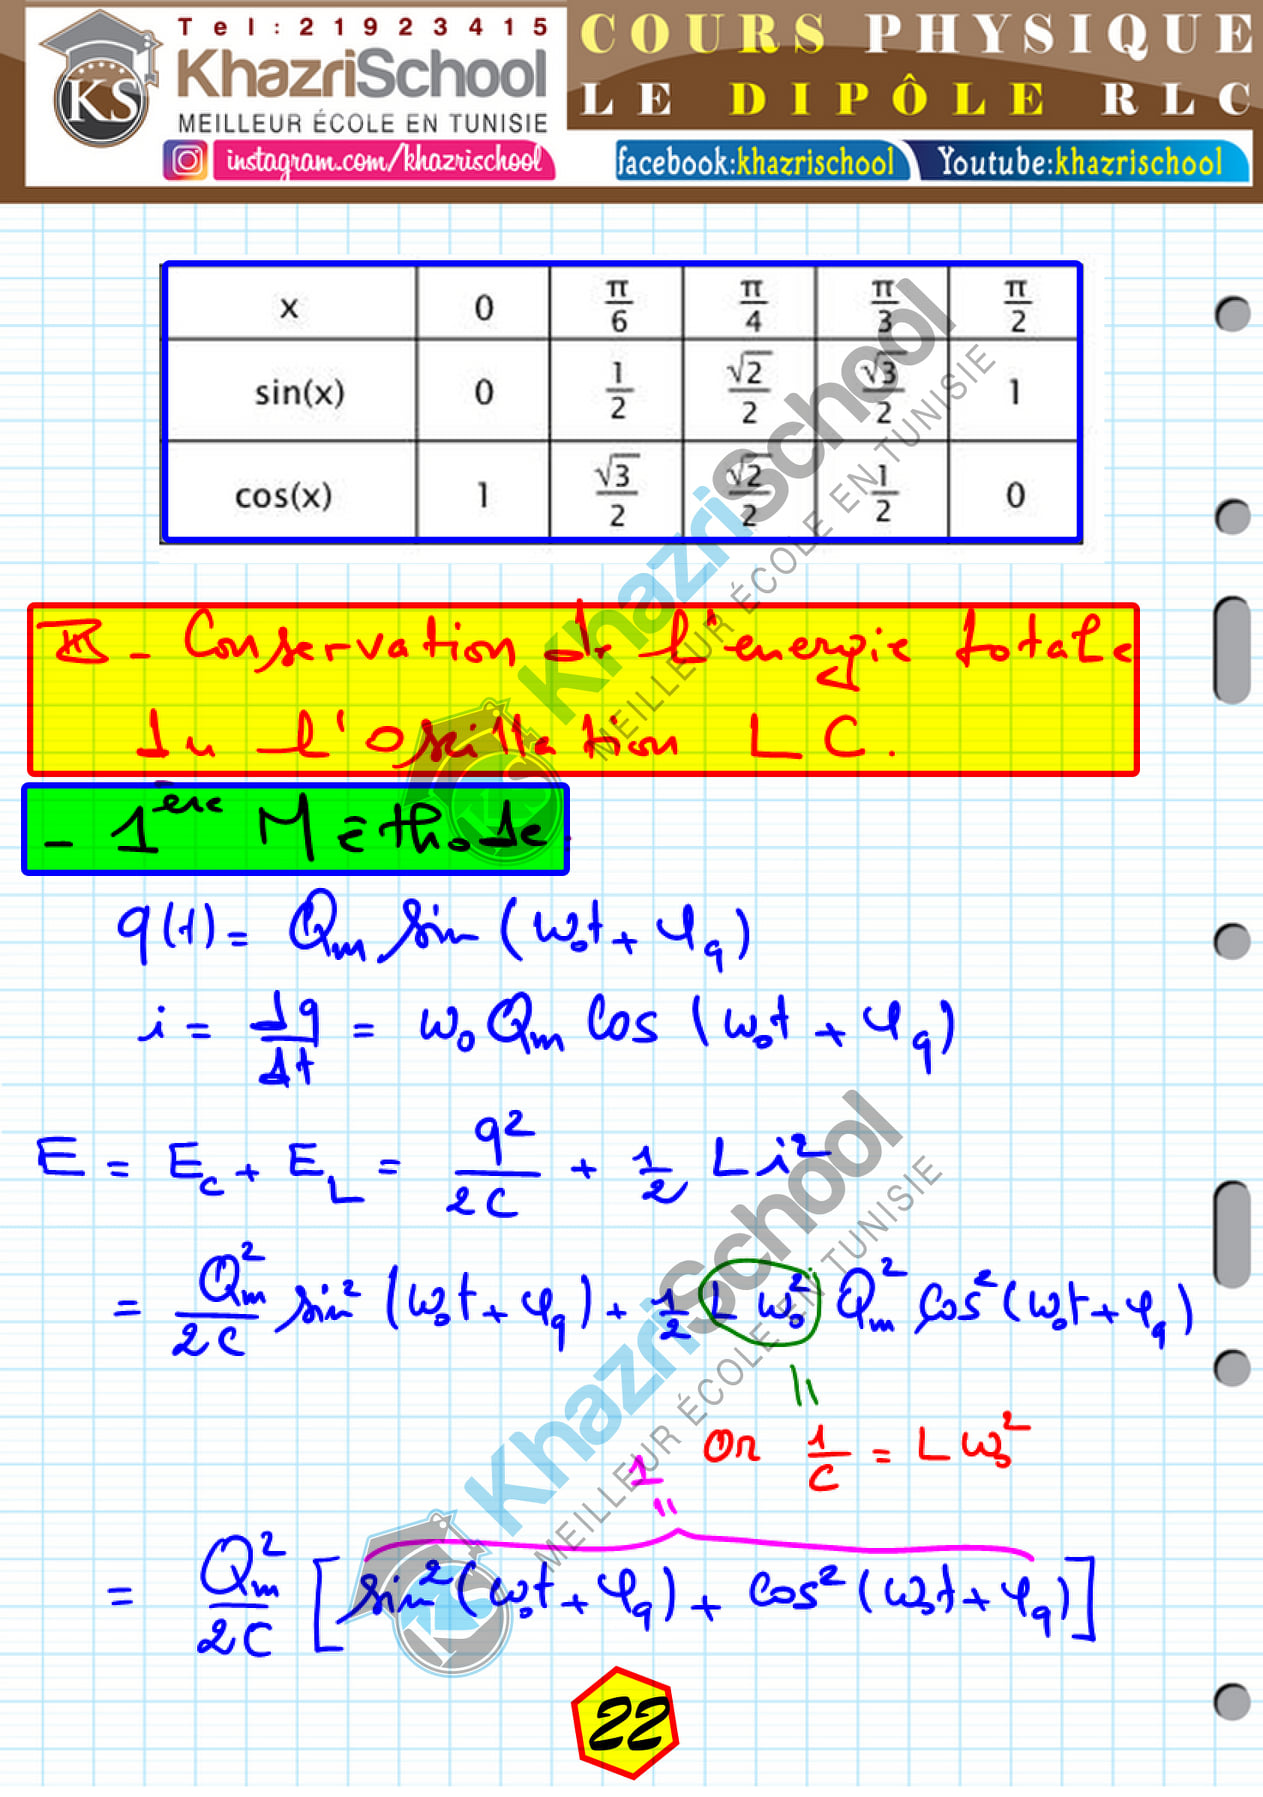 Tel:21923415
KS
KhazriSchool
MEILLEUR ÉCOLE EN TUNISIE
instagram.com/khazrischool
COURS PHYSIQUE
LE DIPÔLE RLC
facebook:khazrischool
Youtube:khazrischool
x 0 π/6 π/4 π/3 π/2
sin(x) 0 1/2 √2/2 √3/2 1
cos(x) 1 √3/2 √2/2 1/2 0
KhazriSchool
MEILLEUR ÉCOLE EN TUNISIE
- Conservation de l'énergie totale
du l'Oscillation LC.
- 1ère Méthode.
q(t) = Qm sin (ω₀t + φq)
i = dq/dt = ω₀ Qm cos (ω₀t + φq)
E = Ec + EL = q²/2C + 1/2 L i²
= Qm²/2C sin² (ω₀t + φq) + 1/2 L ω₀² Qm² cos² (ω₀t + φq)
=
or 1/C = L ω₀²
1
=
= Qm²/2C [sin² (ω₀t + φq) + cos² (ω₀t + φq)]
KhazriSchool
MEILLEUR ÉCOLE EN TUNISIE
KS
22